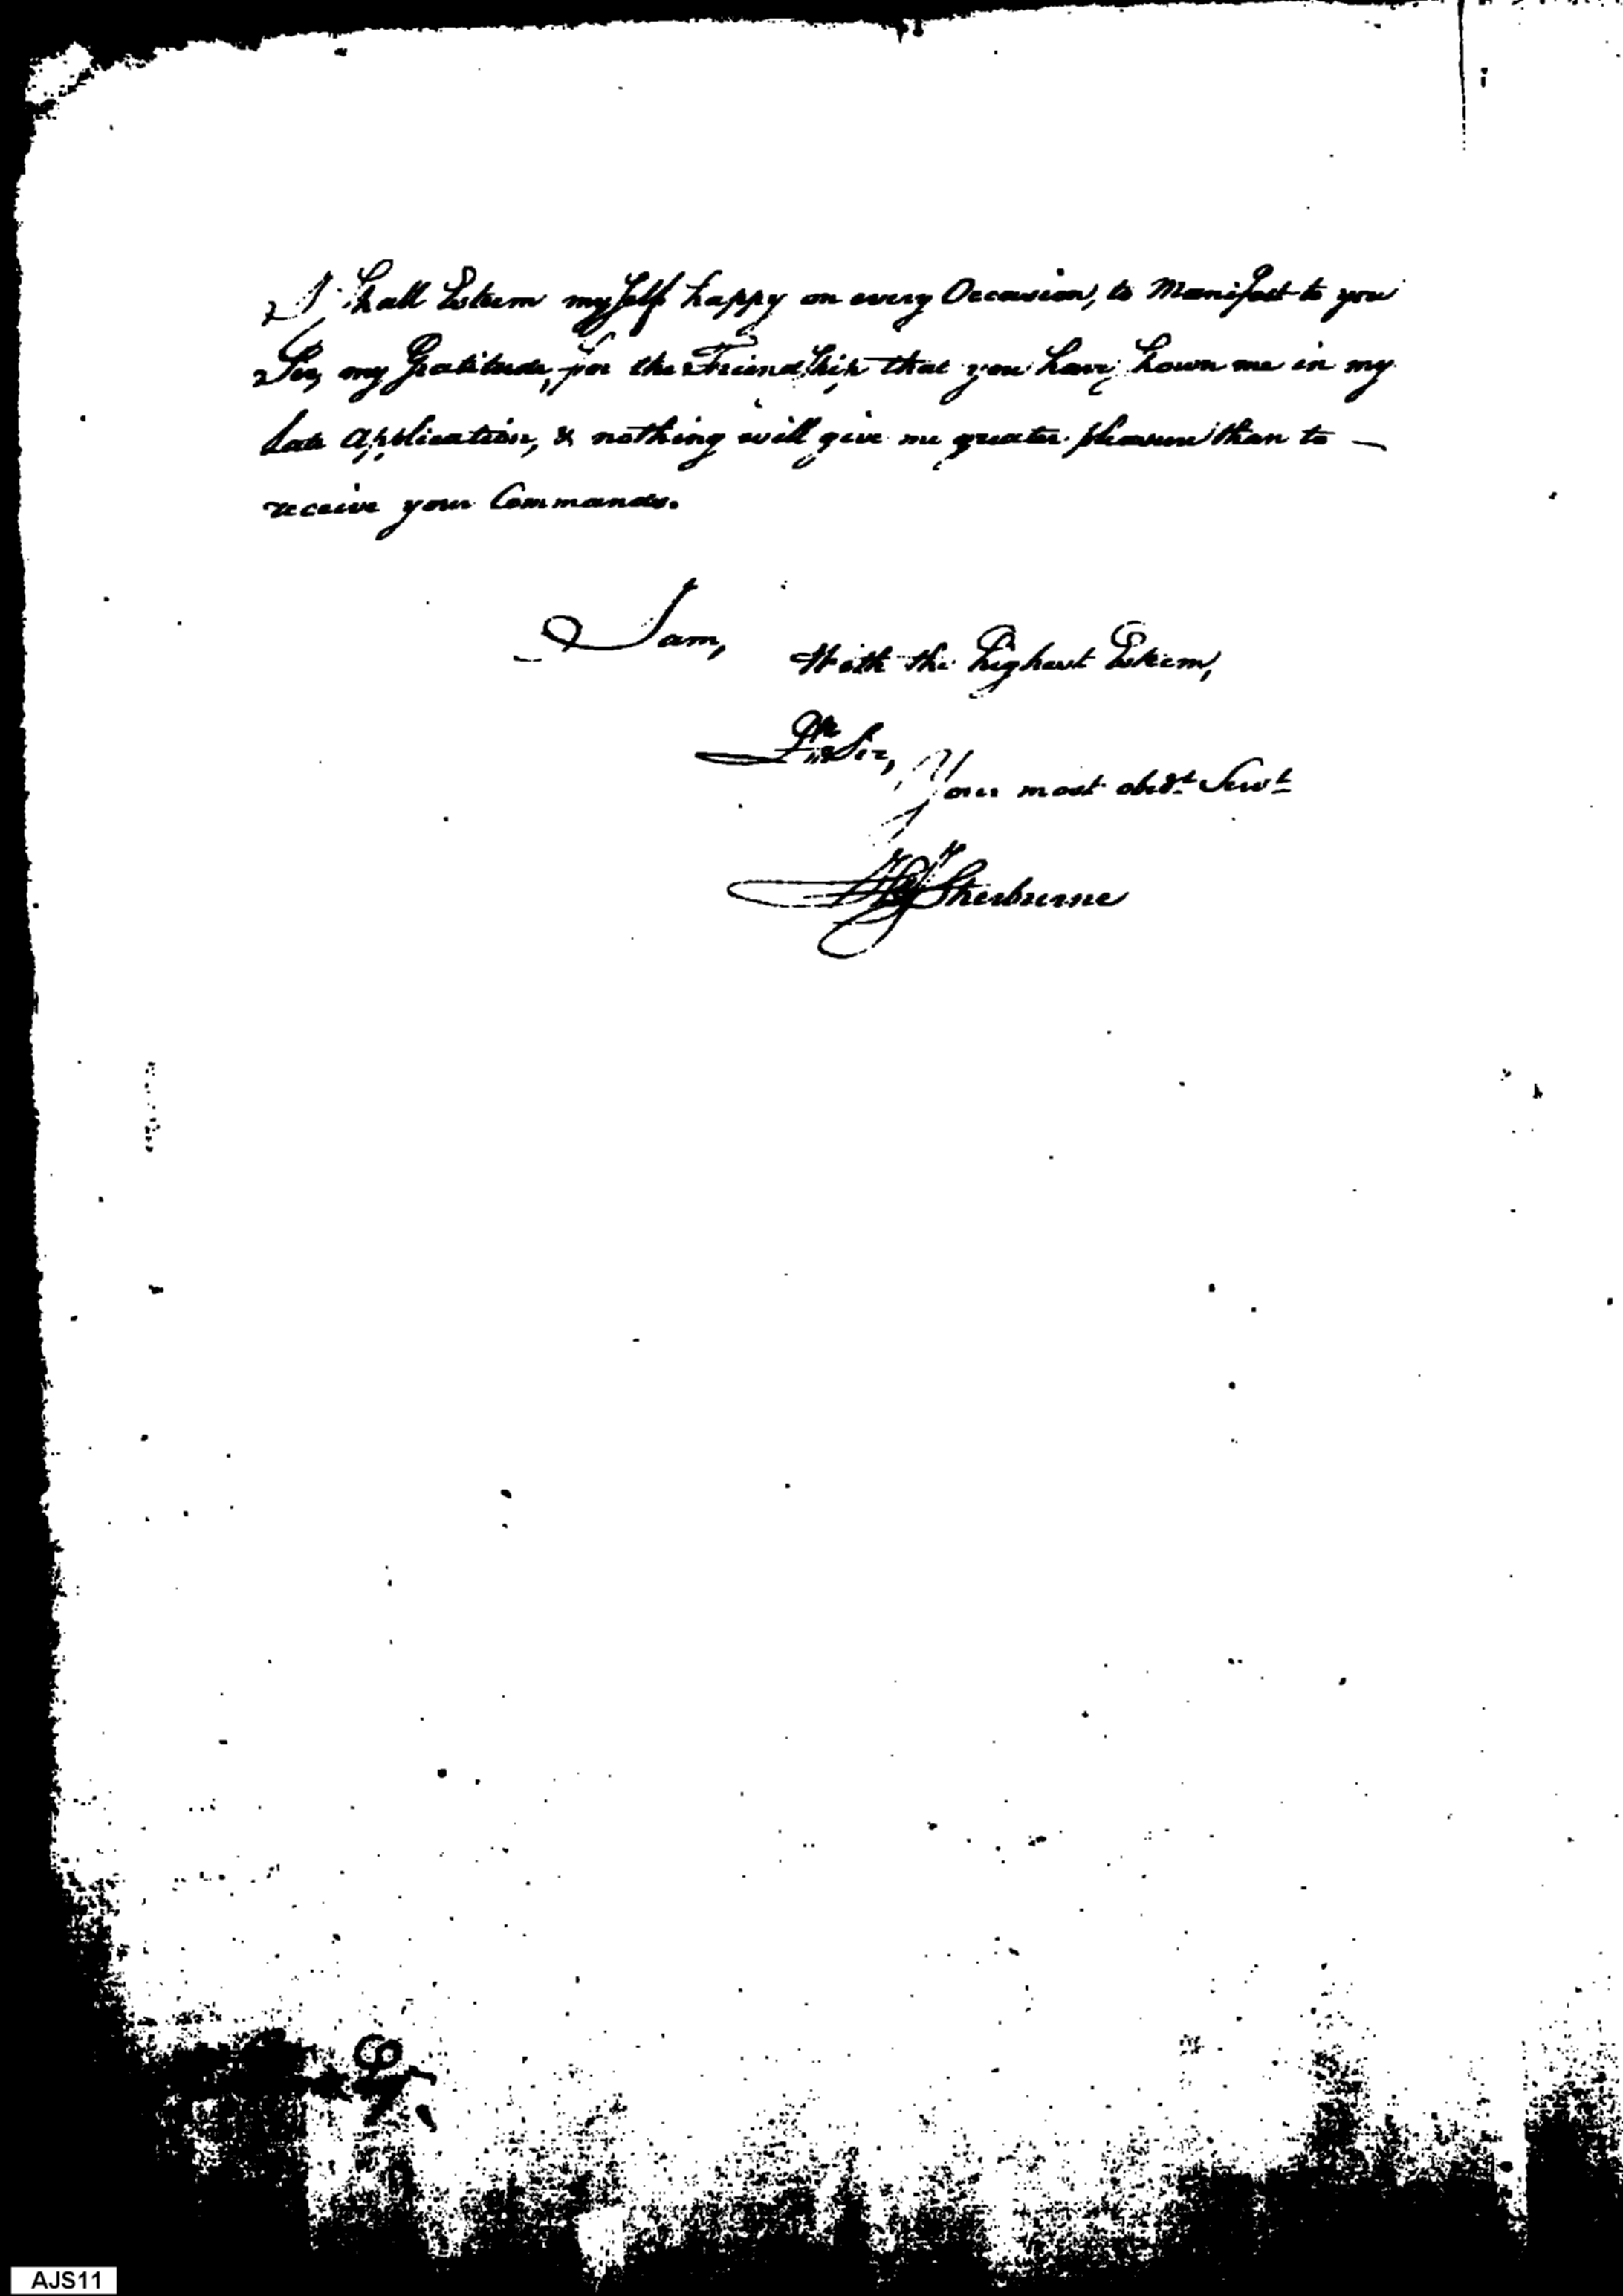 I Shall Esteem my Self happy on every Occasion, to Manifest to you
Sir, my Gratitude, for the Friendship that you have Shown me in my
late Application, & nothing will give me greater pleasure than to —
receive your Commands.
I am,
With the highest Esteem,
Sir,
Your most obedt. Servt
Sherburne
AJS11